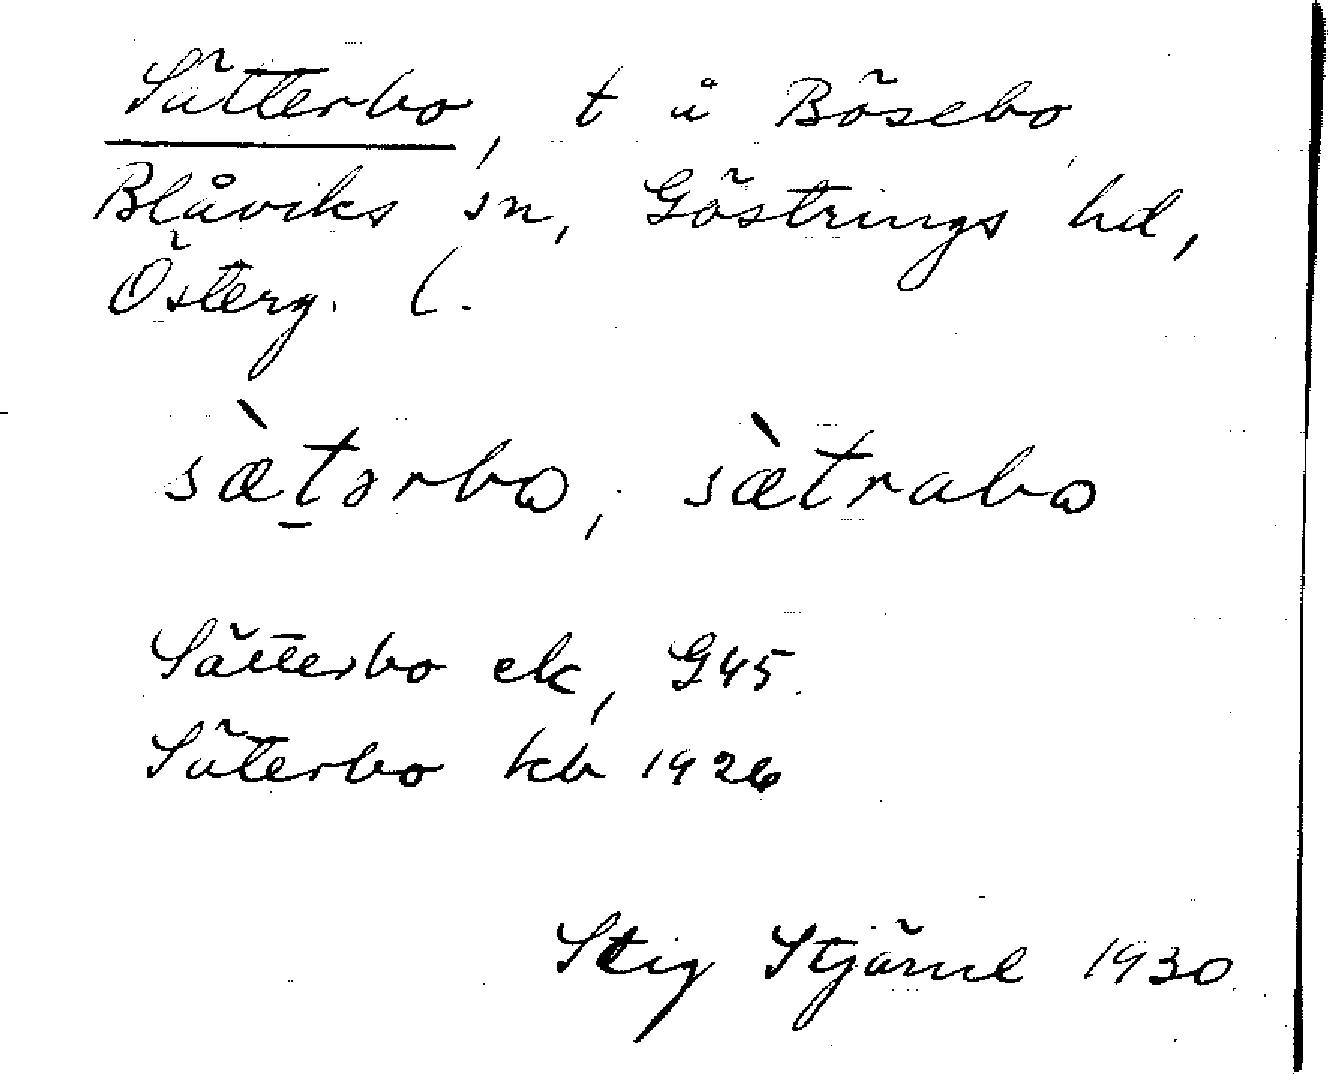 Sätterbo, t å Bösebo
Blåviks sn, Göstrings hd,
Österg. l.
sæ̀t̠ərbω, sæ̀trabω
Sätterbo ek, G45.
Säterbo kb 1926
Stig Stjärnl 1930